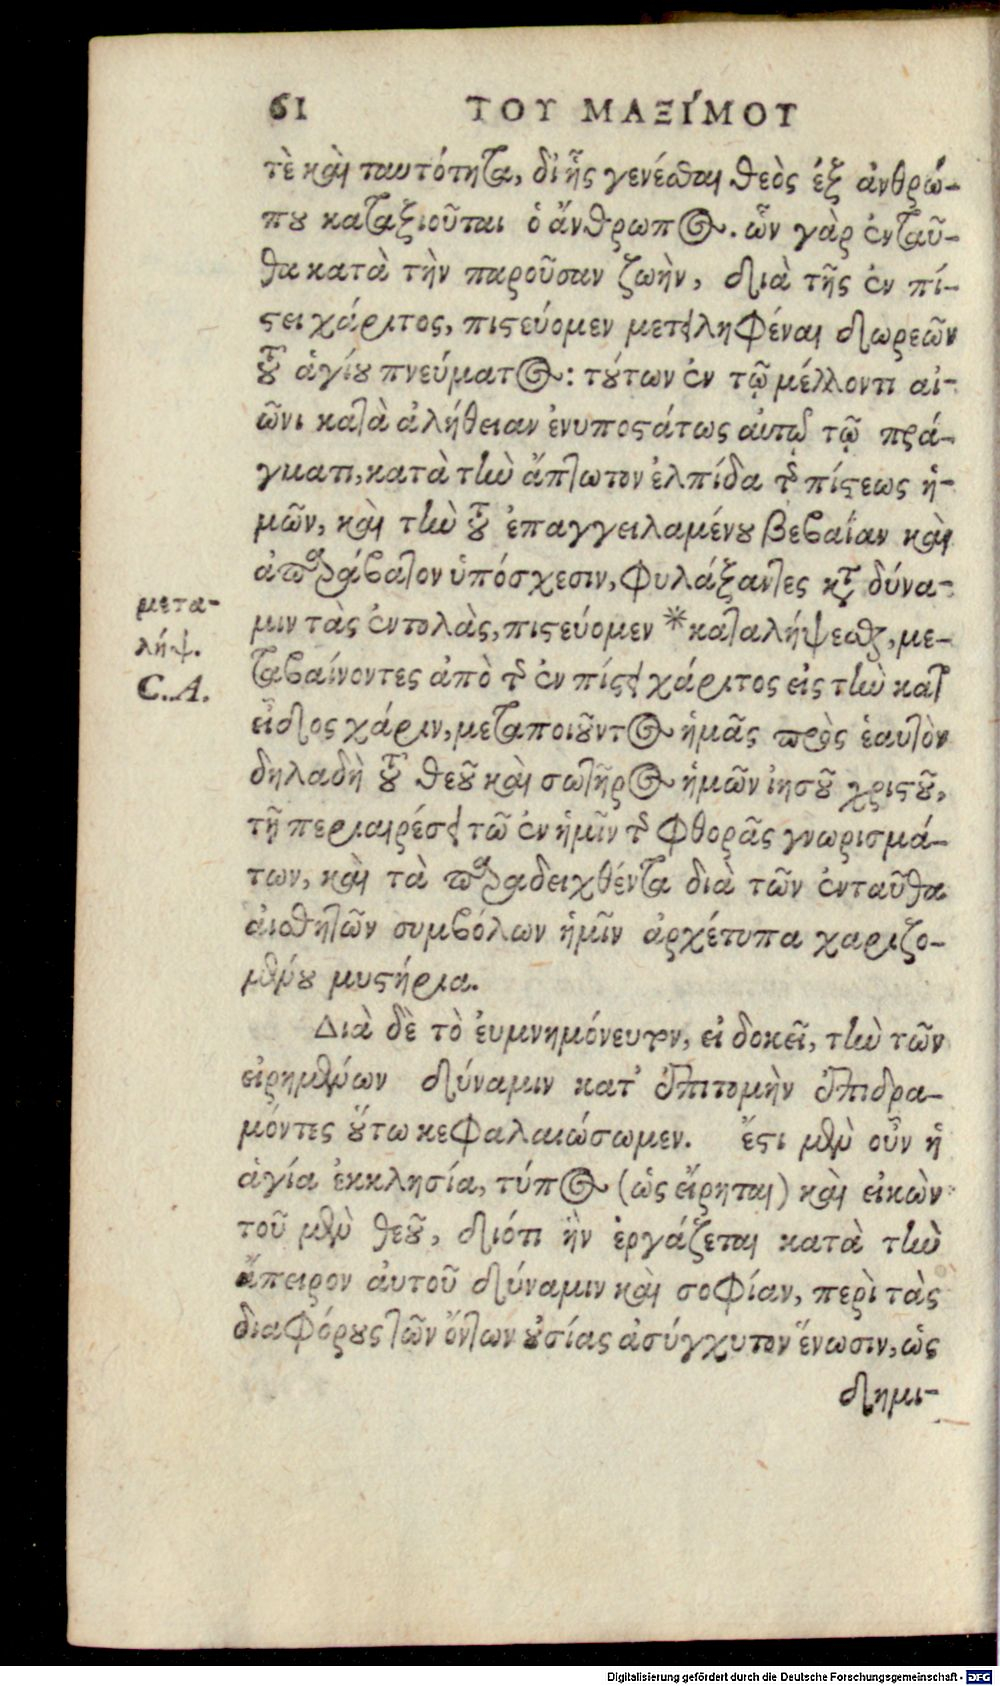 61 ΤΟΥ ΜΑΞΙΜΟΥ
τὲ καὶ ταυτότητα, δι' ἧς γενέσθαι θεὸς ἐξ ἀνθρώ-
που καταξιοῦται ὁ ἄνθρωπος. ὧν γὰρ ἐνταῦ-
θα κατὰ τὴν παροῦσαν ζωὴν, διὰ τῆς ἐν πί-
στει χάριτος, πιστεύομεν μετειληφέναι δωρεῶν
τοῦ ἁγίου πνεύματος: τούτων ἐν τῷ μέλλοντι αἰ-
ῶνι κατὰ ἀλήθειαν ἐνυποστάτως αὐτῷ τῷ πρά-
γματι, κατὰ τὴν ἄπτωτον ἐλπίδα τῆς πίστεως ἡ-
μῶν, καὶ τὴν τοῦ ἐπαγγειλαμένου βεβαίαν καὶ
ἀπαράβατον ὑπόσχεσιν, φυλάξαντες κατὰ δύνα-
μιν τὰς ἐντολὰς, πιστεύομεν *καταλήψεσθαι, με-
ταβαίνοντες ἀπὸ τῆς ἐν πίστει χάριτος εἰς τὴν κατ'
εἶδος χάριν, μεταποιοῦντος ἡμᾶς πρὸς ἑαυτὸν
δηλαδὴ τοῦ θεοῦ καὶ σωτῆρος ἡμῶν ἰησοῦ χριστοῦ,
τῇ περιαιρέσει τῶν ἐν ἡμῖν τῆς φθορᾶς γνωρισμά-
των, καὶ τὰ παραδειχθέντα διὰ τῶν ἐνταῦθα
αἰσθητῶν συμβόλων ἡμῖν ἀρχέτυπα χαριζο-
μένου μυστήρια.
Διὰ δὲ τὸ ἐυμνημόνευτον, εἰ δοκεῖ, τὴν τῶν
εἰρημένων δύναμιν κατ' ἐπιτομὴν ἐπιδρα-
μόντες οὕτω κεφαλαιώσωμεν. ἔστι μὲν οὖν ἡ
ἁγία ἐκκλησία, τύπος (ὡς εἴρηται) καὶ εἰκὼν
τοῦ μὲν θεοῦ, διότι ἣν ἐργάζεται κατὰ τὴν
ἄπειρον ἀυτοῦ δύναμιν καὶ σοφίαν, περὶ τὰς
διαφόρους τῶν ὄντων οὐσίας ἀσύγχυτον ἕνωσιν, ὡς
δημι-
μετα-
λήψ.
C.A.
Digitalisierung gefördert durch die Deutsche Forschungsgemeinschaft - DFG